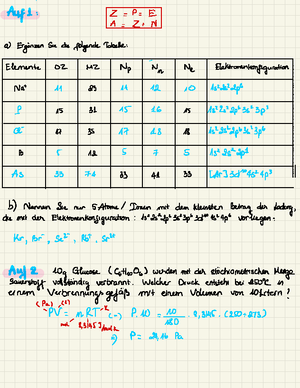 Auf 1:
Z = P = E
A = Z + N
a) Ergänzen Sie die folgende Tabelle:
Elemente OZ MZ Np Nn Ne Elektronenkonfiguration
Na⁺ 11 23 11 12 10 1s² 2s² 2p⁶
P 15 31 15 16 15 1s² 2s² 2p⁶ 3s² 3p³
Cl⁻ 17 35 17 18 18 1s² 2s² 2p⁶ 3s² 3p⁶
B 5 12 5 7 5 1s² 2s² 2p¹
As 33 74 33 41 33 [Ar] 3d¹⁰ 4s² 4p³
b) Nennen Sie nur 5 Atome / Ionen mit dem kleinsten Betrag der Ladung,
die mit der Elektronenkonfiguration: 1s² 2s² 2p⁶ 3s² 3p⁶ 3d¹⁰ 4s² 4p⁶ vorliegen.
Kr, Br⁻, Se²⁻, Rb⁺, Sr²⁺
Auf 2 10g Glucose (C₆H₁₂O₆) wurden mit der stöchiometrischen Menge
Sauerstoff vollständig verbrannt. Welcher Druck entsteht bei 250°C in
einem Verbrennungsgefäß mit einem Volumen von 10 Litern?
PV = nRT (-) P. 10 = 10/180 . 8,3145 . (250+273)
P = 24,16 Pa